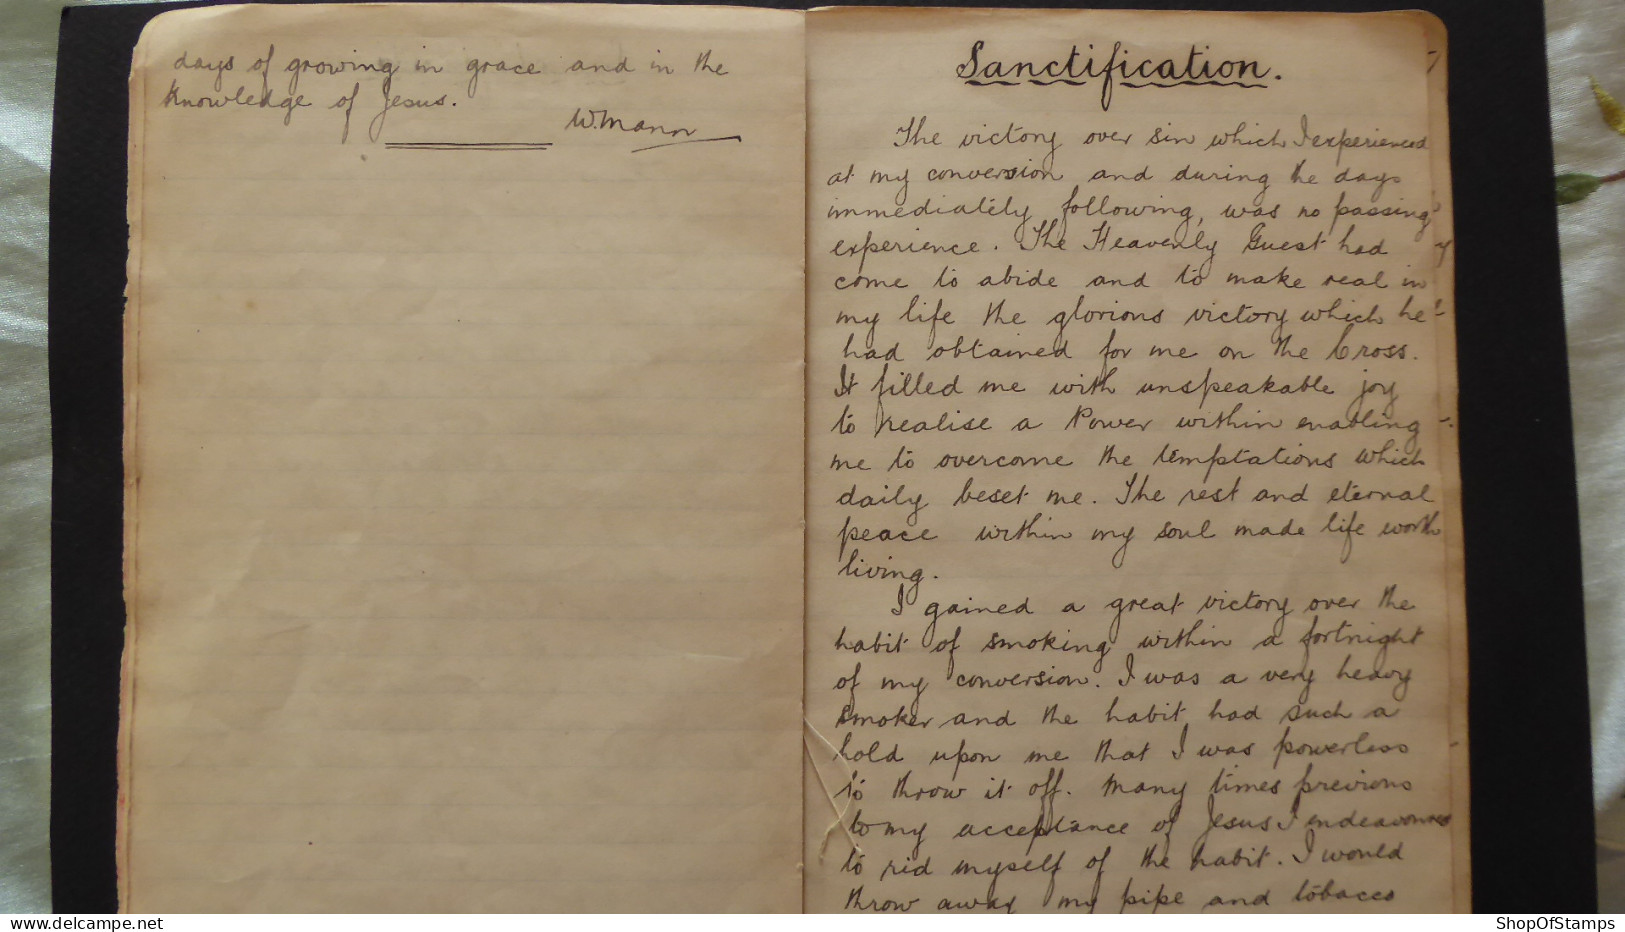 days of growing in grace and in the
knowledge of Jesus.
W. Mann
Sanctification.
The victory over sin which I experienced
at my conversion and during the days
immediately following, was no passing
experience. The Heavenly Guest had
come to abide and to make real in
my life the glorious victory which he
had obtained for me on the Cross.
It filled me with unspeakable joy
to realise a Power within enabling
me to overcome the temptations which
daily beset me. The rest and eternal
peace within my soul made life worth
living.
I gained a great victory over the
habit of smoking within a fortnight
of my conversion. I was a very heavy
smoker and the habit had such a
hold upon me that I was powerless
to throw it off. Many times previous
to my acceptance of Jesus I endeavoured
to rid myself of the habit. I would
throw away my pipe and tobacco
ShopOfStamps